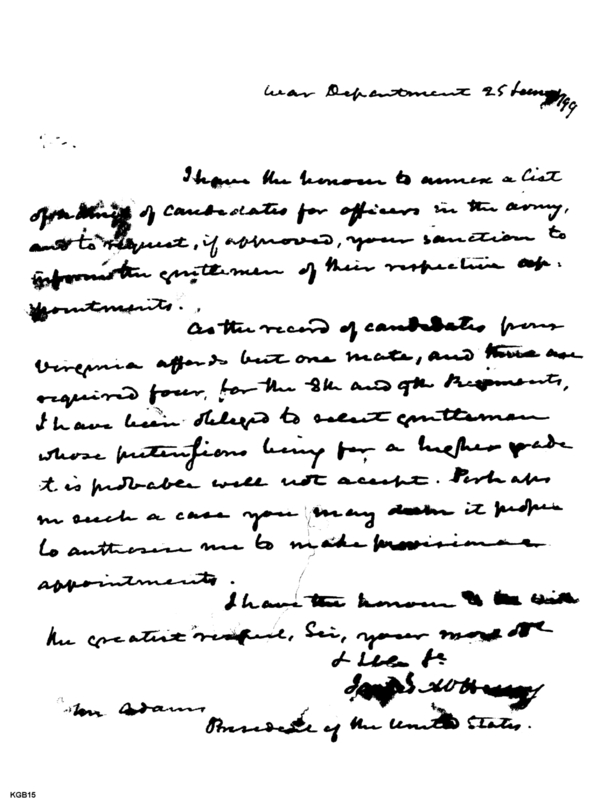 War Department 25 '99
I have the honour to annex a list
of candidates for officers in the army,
and to request, if approved, your sanction to
inform the gentlemen of their respective ap-
pointments.
As the record of candidates from
Virginia affords but one mate, and there are
required four, for the 8th and 9th Regiments,
I have been obliged to select gentlemen
whose pretensions being for a higher grade
it is probable will not accept. Perhaps
in such a case you may deem it proper
to authorise me to make provisional
appointments.
I have the honour to be with
the greatest respect, Sir, your most obt
& hble St
James McHenry
John Adams
President of the United States.
KGB15